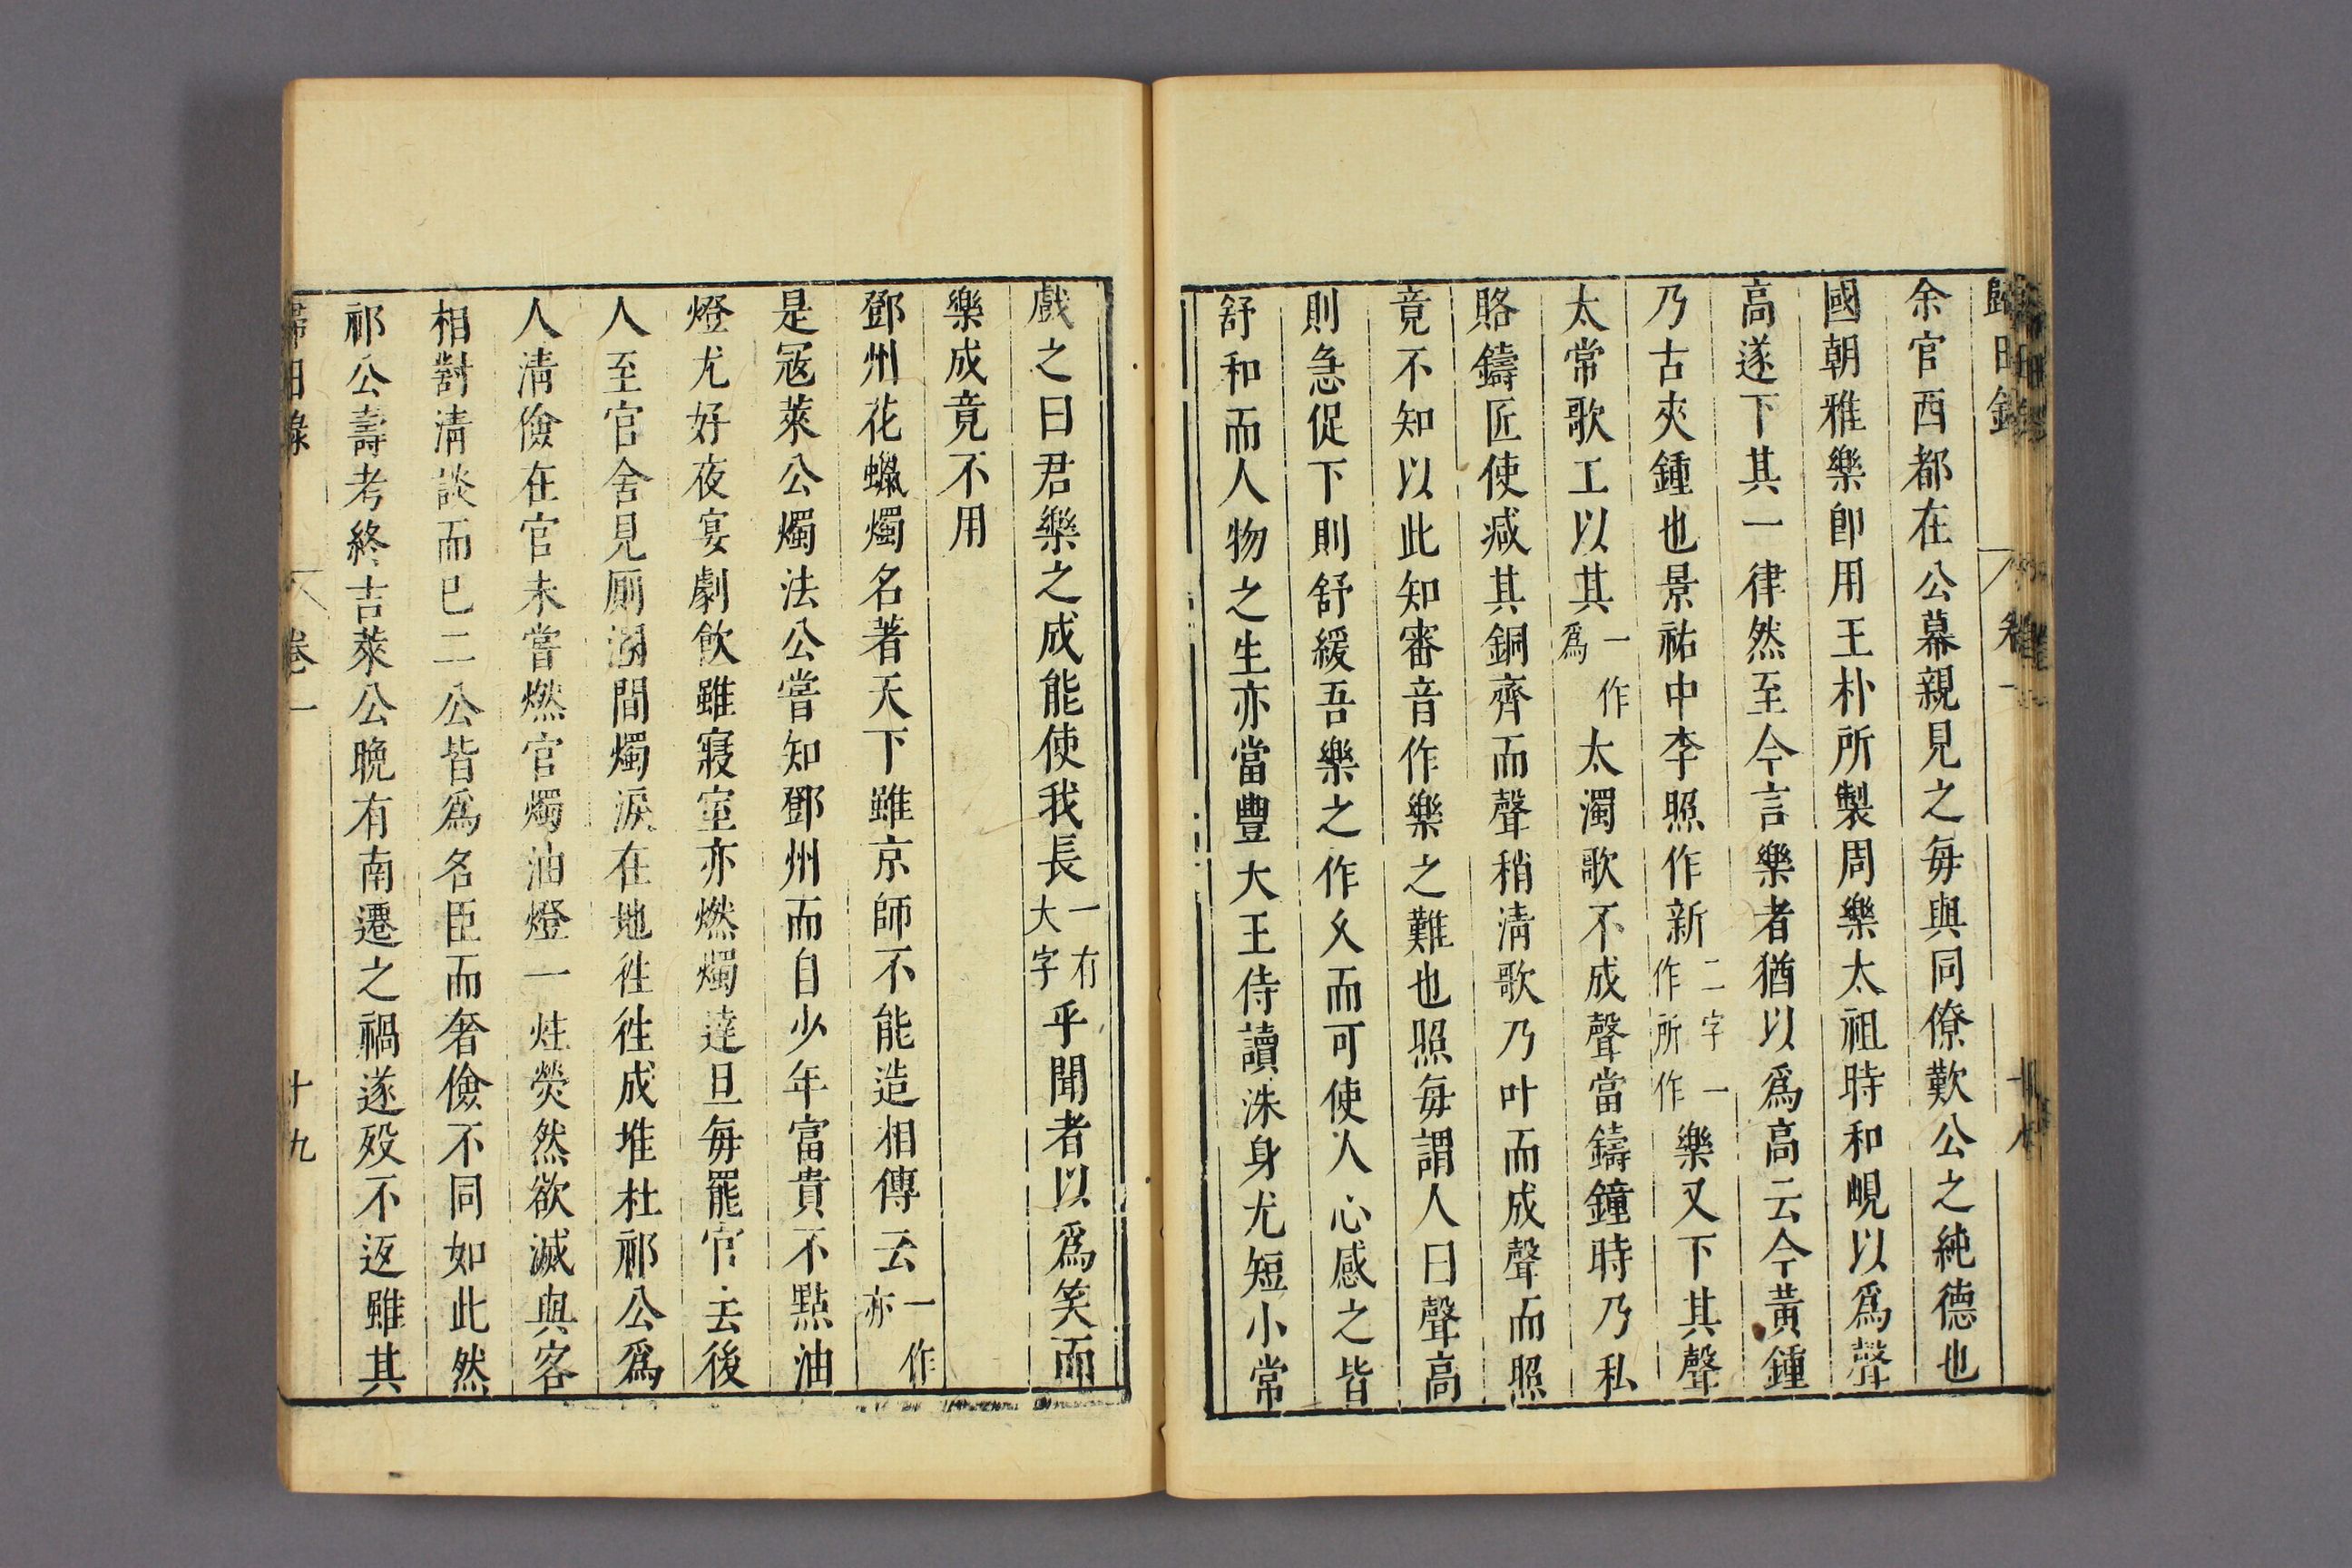 歸田錄 卷一 十八
余官西都在公幕親見之每與同僚歎公之純德也
國朝雅樂卽用王朴所製周樂太祖時和峴以爲聲
高遂下其一律然至今言樂者猶以爲高云今黃鍾
乃古夾鍾也景祐中李照作新二字一作所作樂又下其聲
太常歌工以其一作爲太濁歌不成聲當鑄鐘時乃私
賂鑄匠使減其銅齊而聲稍淸歌乃叶而成聲而照
竟不知以此知審音作樂之難也照每謂人曰聲高
則急促下則舒緩吾樂之作久而可使人心感之皆
舒和而人物之生亦當豐大王侍讀洙身尤短小常
戲之曰君樂之成能使我長一有大字乎聞者以爲笑而
樂成竟不用
鄧州花蠟燭名著天下雖京師不能造相傳云一作亦
是寇萊公燭法公嘗知鄧州而自少年富貴不點油
燈尤好夜宴劇飲雖寢室亦燃燭達旦每罷官去後
人至官舍見廁溷間燭淚在地徃徃成堆杜祁公爲
人淸儉在官未嘗燃官燭油燈一炷熒然欲滅與客
相對淸談而已二公皆爲名臣而奢儉不同如此然
祁公壽考終吉萊公晚有南遷之禍遂歿不返雖其
歸田錄 卷一 十九